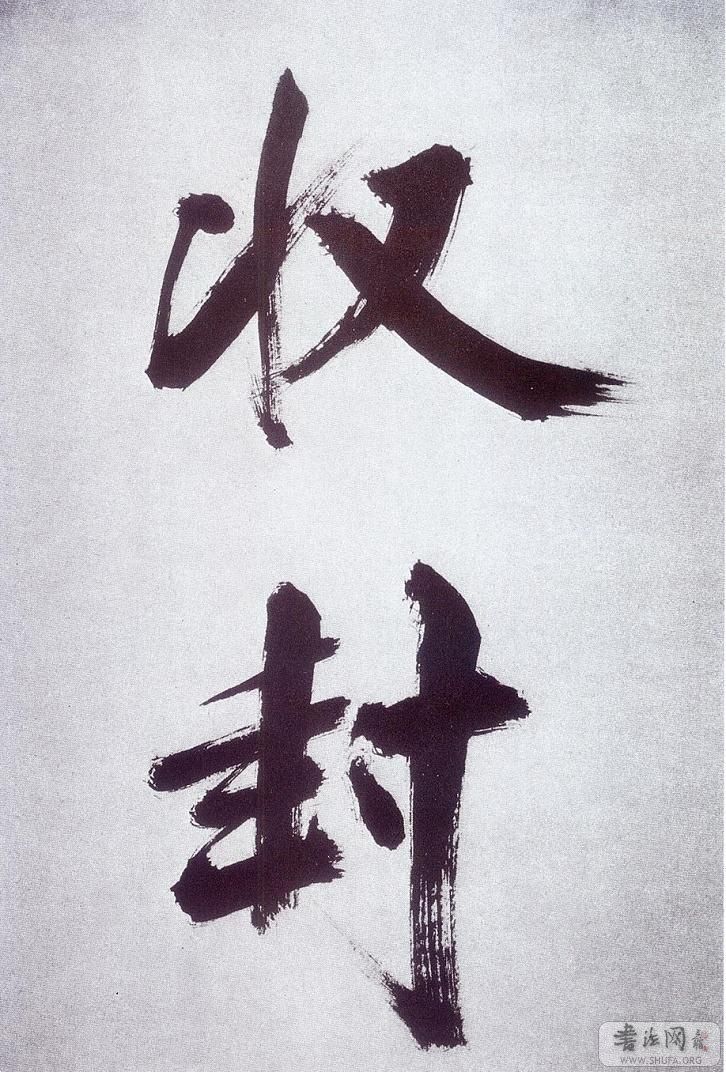 收
封
書法网
WWW.SHUFA.ORG